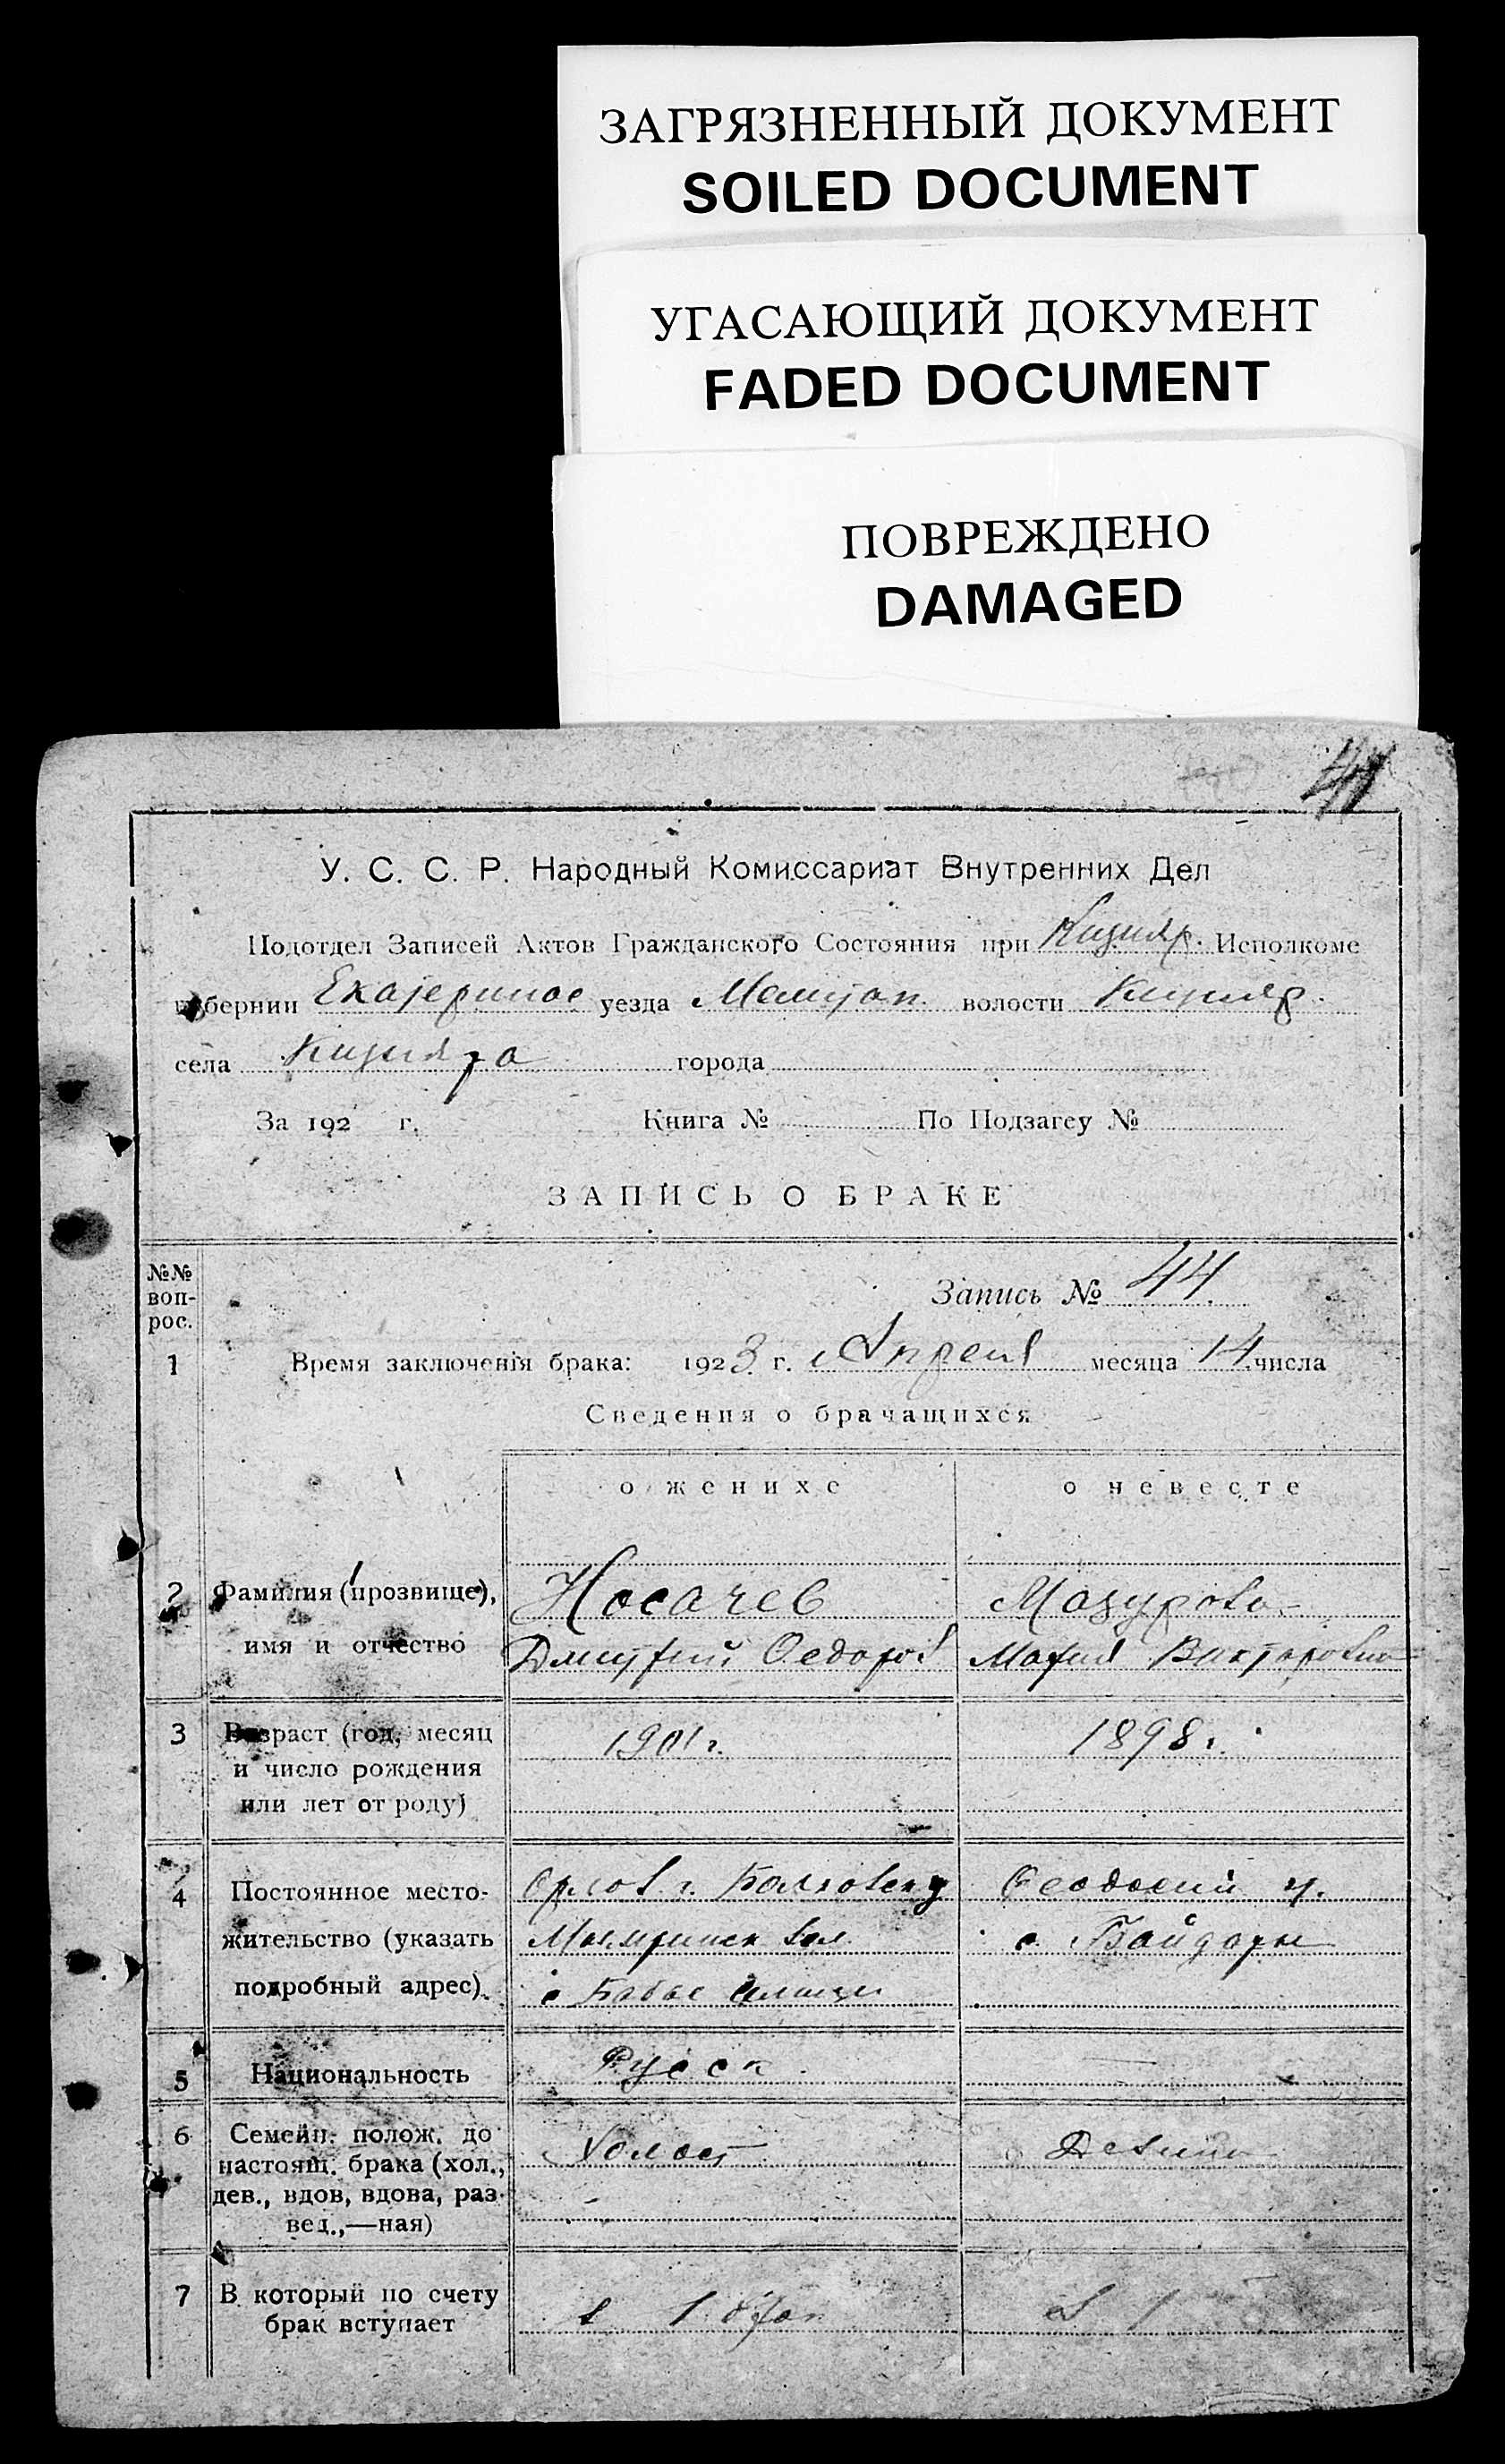 ЗАГРЯЗНЕННЫЙ ДОКУМЕНТ
SOILED DOCUMENT
УГАСАЮЩИЙ ДОКУМЕНТ
FADED DOCUMENT
ПОВРЕЖДЕНО
DAMAGED
У. С. С. Р. Народный Комиссариат Внутренних Дел
Подотдел Записей Актов Гражданского Состояния при Кизияр. Исполкоме
губернии Екатеринос уезда Мелитоп. волости Кизияр.
села Кизияра города
За 192 г. Книга № По Подзагсу №
ЗАПИСЬ О БРАКЕ
№№ воп-рос.
Запись № 44
1 Время заключенія брака: 1923 г. Апреля месяца 14 числа
Сведения о брачащихся
о женихе о невесте
2 Фамилия (прозвище), Носачев Мазурова
имя и отчество Дмитрий Федоров Мария Викторовна
3 Возраст (год, месяц 1901 г. 1898 г.
и число рождения
или лет от роду)
4 Постоянное место- Орлов. г. Болховск у Феодосий у.
жительство (указать вол. с. Байдары
подробный адрес). с
5 Национальность Русск
6 Семейн. полож. до Холост Девица
настоящ. брака (хол.,
дев., вдов, вдова, раз-
вед.,—ная)
7 В который по счету в 1 брак в 1
брак вступает